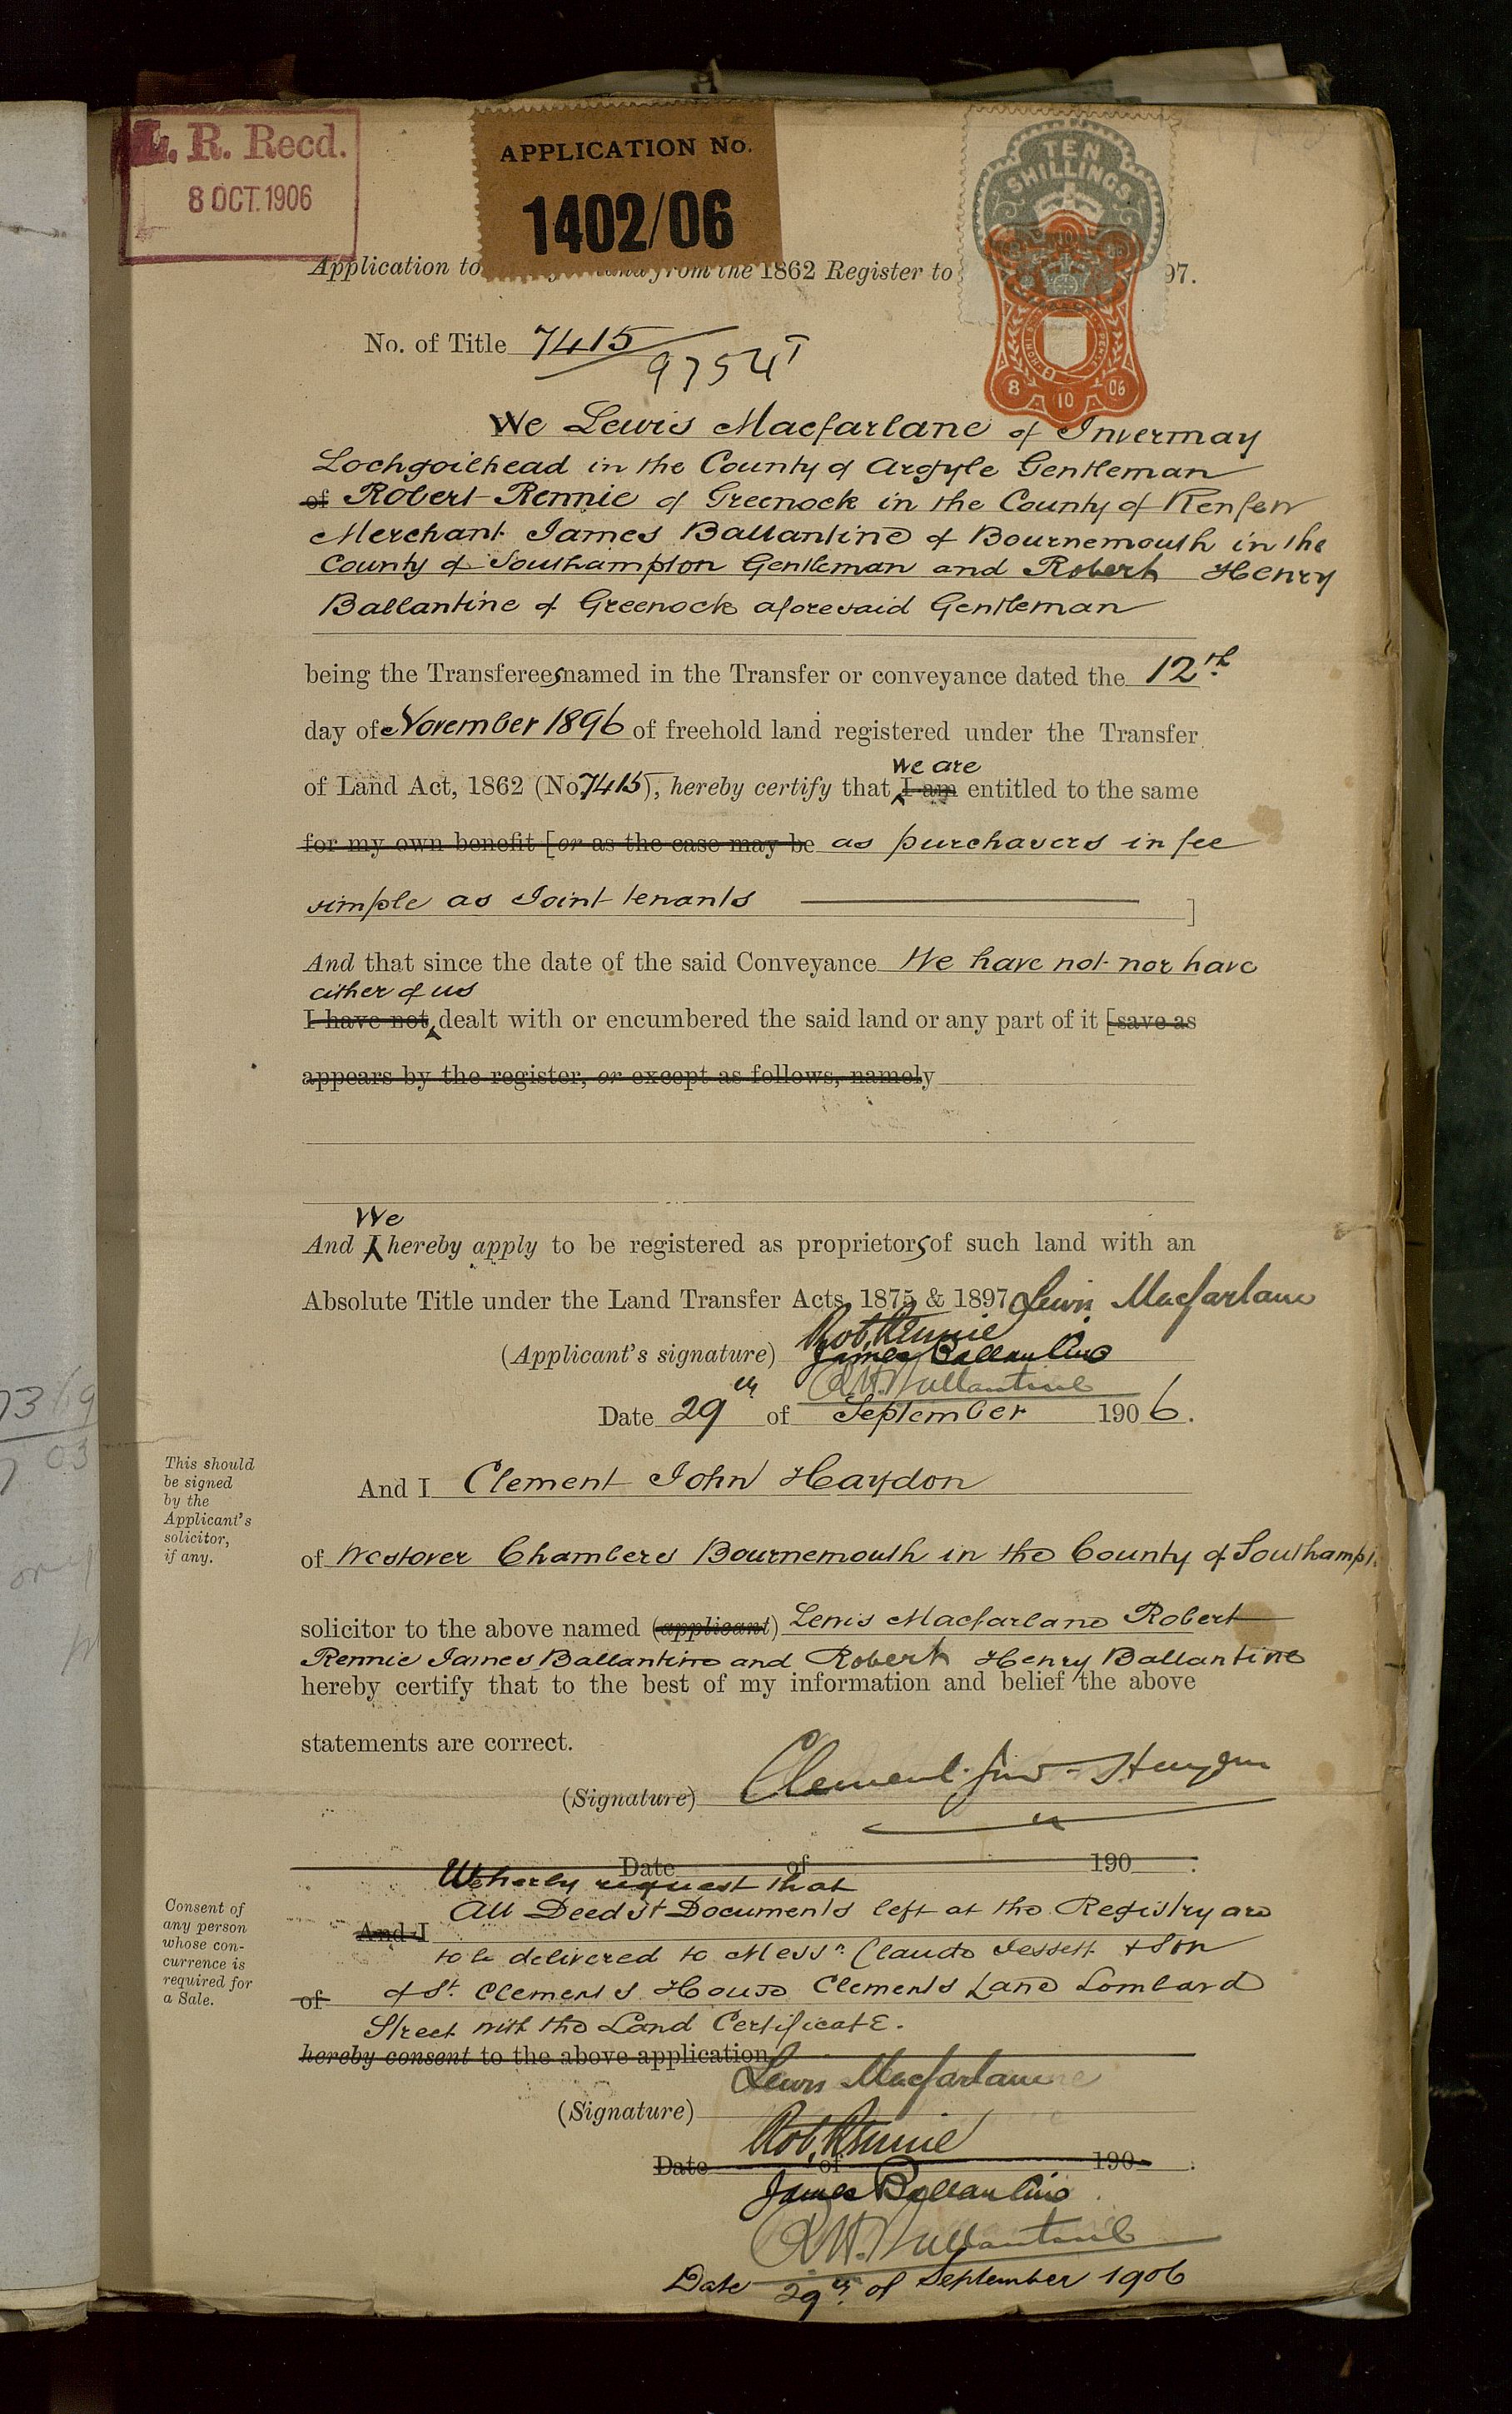 L. R. Recd.
8 OCT. 1906
APPLICATION No.
1402/06
TEN
SHILLINGS
8 10 06
Application to from the 1862 Register to 97.
No. of Title 7415
9754
We Lewis Macfarlane of Invermay
Lochgoilhead in the County of Argyle Gentleman
of Robert Rennie of Greenock in the County of Renfew
Merchant James Ballantine of Bournemouth in the
County of Southampton Gentleman and Robert Henry
Ballantine of Greenock aforesaid Gentleman
being the Transferees named in the Transfer or conveyance dated the 12th
day of November 1896 of freehold land registered under the Transfer
We are
of Land Act, 1862 (No. 7415), hereby certify that I am entitled to the same
for my own benefit [or as the case may be as purchasers in fee
simple as Joint tenants ]
And that since the date of the said Conveyance We have not nor have
either of us
I have not dealt with or encumbered the said land or any part of it [save as
appears by the register, or except as follows, namely
We
And I hereby apply to be registered as proprietors of such land with an
Absolute Title under the Land Transfer Acts, 1875 & 1897 Lewis Macfarlane
Rob. Rennie
(Applicant's signature) James Ballantine
R H. Ballantine
Date 29th of September 1906.
This should
be signed
by the
Applicant's
solicitor,
if any.
And I Clement John Haydon
of Westover Chambers Bournemouth in the County of Southampt.
solicitor to the above named (applicant) Lewis Macfarlane Robert
Rennie James Ballantine and Robert Henry Ballantine
hereby certify that to the best of my information and belief the above
statements are correct.
(Signature) Clement John Haydon
Date of 190 .
We hereby request that
Consent of
any person
whose con-
currence is
required for
a Sale.
All Deeds & Documents left at the Registry are
And I
to be delivered to Messrs. Claude Jessett & Son
of of St. Clements House Clements Lane Lombard
Street with the Land Certificate.
hereby consent to the above application
Lewis Macfarlane
(Signature)
Rob. Rennie
Date of 190 .
James Ballantine
R H. Ballantine
Date 29th of September 1906